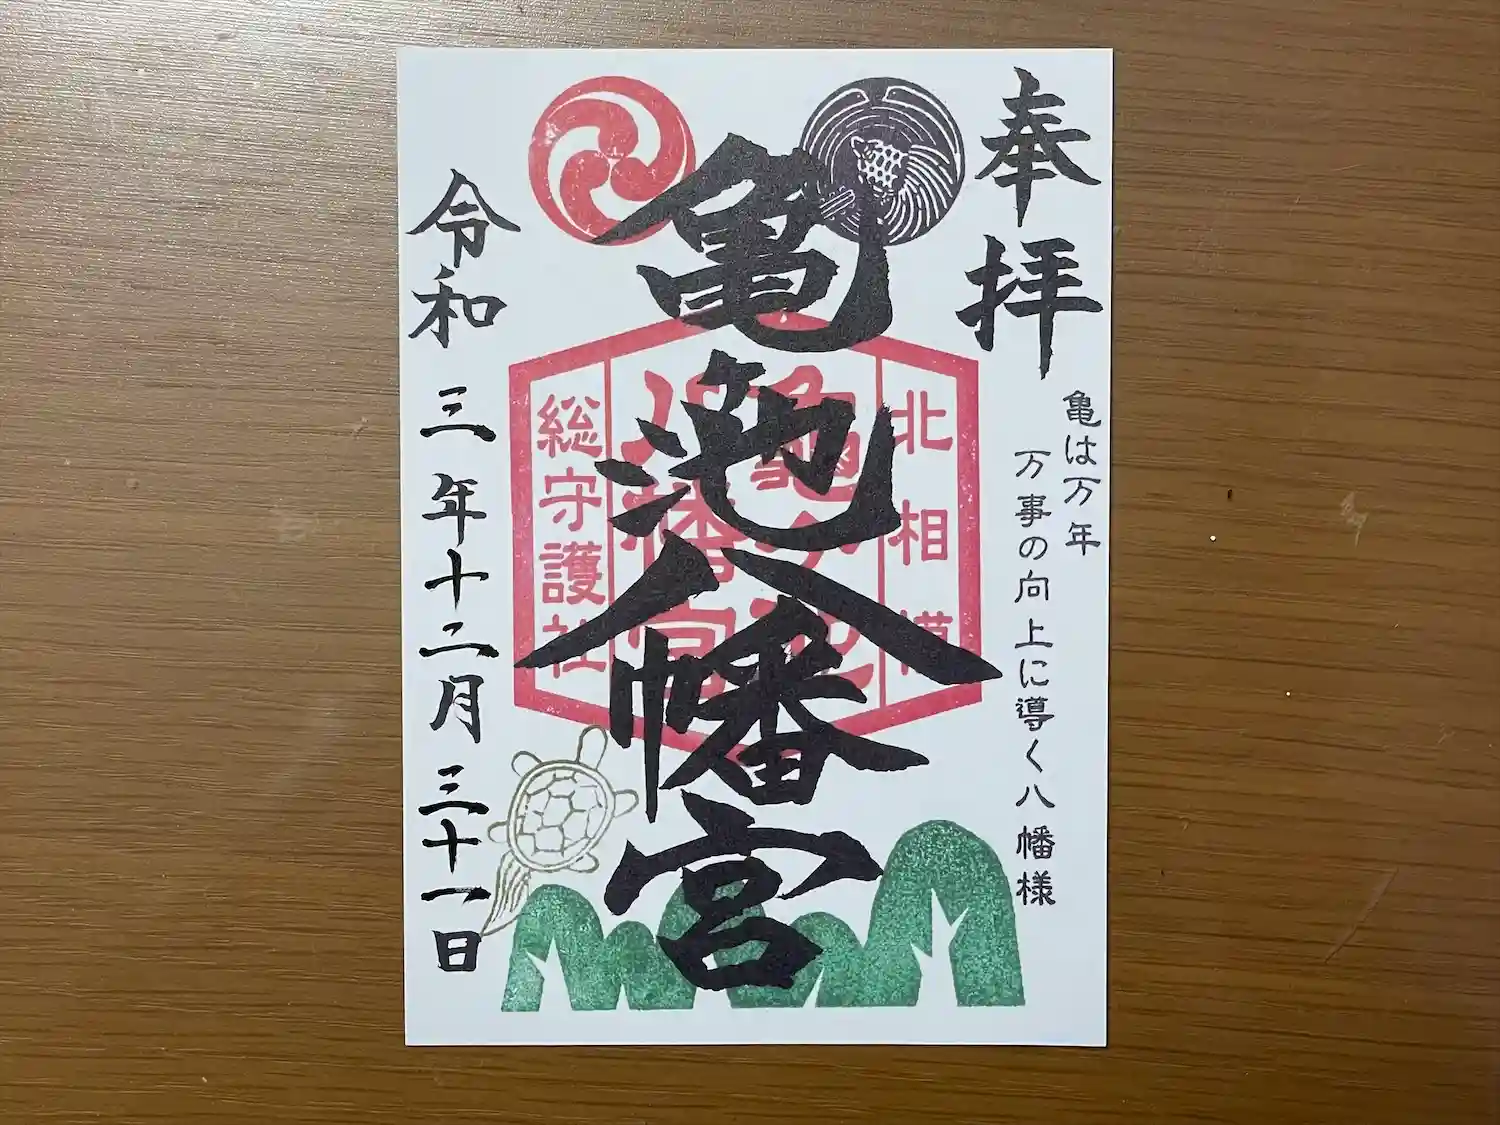 奉拝
亀は万年
万事の向上に導く八幡様
亀池八幡宮
北相模
亀ヶ池
八幡宮
総守護社
令和三年十二月三十一日